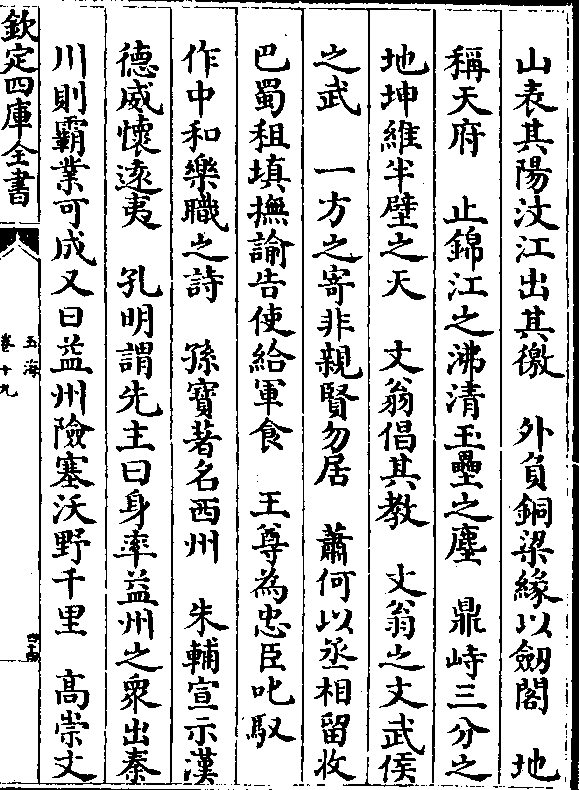 山表其陽汶江出其徼　外負銅梁緣以劒閣　地
稱天府　止錦江之沸清玉壘之塵　鼎峙三分之
地坤維半壁之天　文翁倡其教　文翁之文武侯
之武　一方之寄非親賢勿居　蕭何以丞相留收
巴蜀租填撫諭告使給軍食　王尊為忠臣叱馭
作中和樂職之詩　孫寶著名西州　朱輔宣示漢
德威懷逺夷　孔明謂先主曰身率益州之衆出秦
川則霸業可成又曰益州險塞沃野千里　高崇文
欽定四庫全書
玉海
卷十九